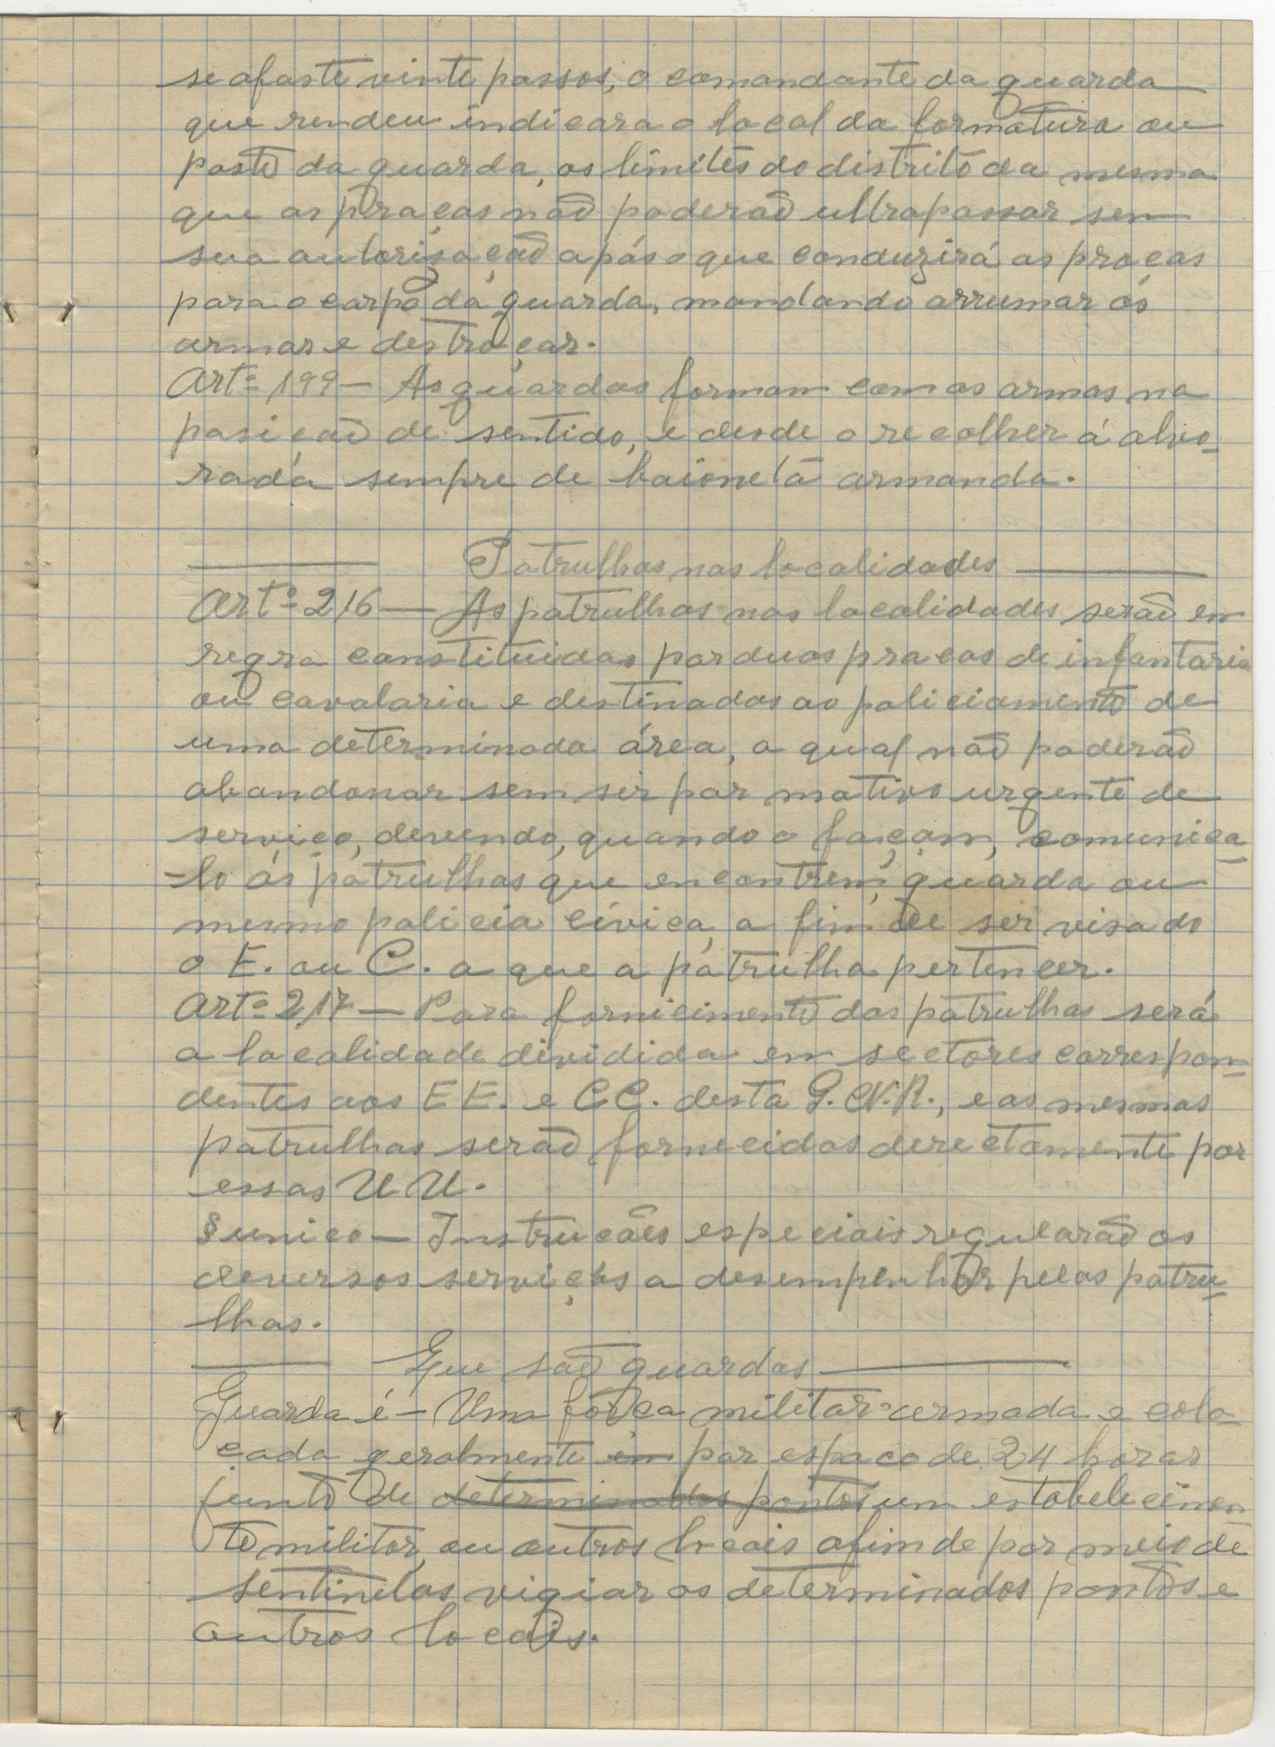 se afaste vinte passos, o comandante da guarda
que rendeu indicara o local da formatura ou
posto da guarda, os limites do distrito da mesma
que as praças não poderão ultrapassar sem
sua autorisação após o que conduzirá as praças
para o corpo da guarda, mandando arrumar as
armas e destroçar.
Artº 199 — As guardas formam com as armas na
posição de sentido, e desde o recolher á alvo-
rada sempre de baioneta armanda.
Patrulhas nas localidades
Artº 216 — As patrulhas nas localidades serão em
regra constituidas por duas praças de infantaria
ou cavalaria e destinadas ao policiamento de
uma determinada área, a qual não poderão
abandonar sem ser por motivo urgente de
serviço, devendo, quando o façam, comunica-
-lo ás patrulhas que encontrem, guarda ou
mesmo policia civica, a fim de ser visado
o E. ou C. a que a patrulha pertencer.
Artº 217 — Para fornicimento das patrulhas será
a localidade dividida em sectores correspon-
dentes aos E E. e C C. desta G. N. R., e as mesmas
patrulhas serão fornecidas derectamente por
essas U U.
§ unico — Instrucões especiais regularão os
deversos serviços a desempenhar pelas patru-
lhas.
Que são guardas
Guarda é — Uma força militar armada e colo
cada geralmente em por espaco de 24 horas
junto de determinados pontos um estabelecimen
to militar, ou outros locais afim de por meio de
sentinelas vigiar os determinados pontos e
outros locais.